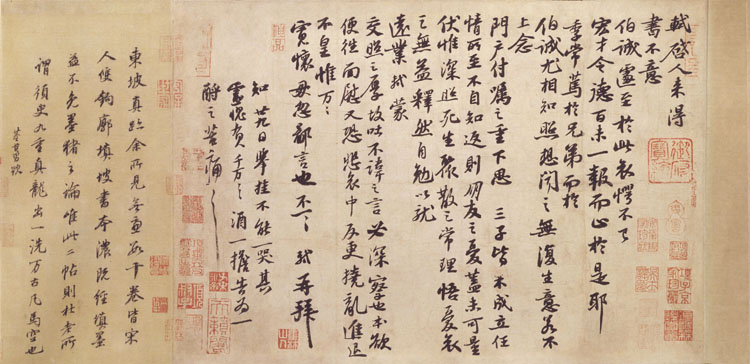 軾啓人来得
書不意
伯誠遽至於此哀愕不已
宏才令德百未一報而止於是耶
季常篤於兄弟而於
伯誠尤相知照想聞之無復生意若不
上念
門戶付囑之重下思三子皆未成立任
情所至不自知返則朋友之憂蓋未可量
伏惟深照死生聚散之常理悟憂哀
之無益釋然自勉以就
遠業軾蒙
交照之厚故吐不諱之言必深察也本欲
便往面慰又恐悲哀中反更撓亂進退
不皇惟万万
寬懷毋忽鄙言也不一一軾再拜
知廿九日舉挂不能一哭其
靈愧負千万千万酒一擔告為一
酹之苦痛苦痛
東坡真跡余所見無慮數十卷皆宋
人雙鉤廓填坡書本濃既經填墨
益不免墨猪之論唯此二帖則杜老所
謂須臾九重真龍出一洗万古凡馬空也
董其昌跋